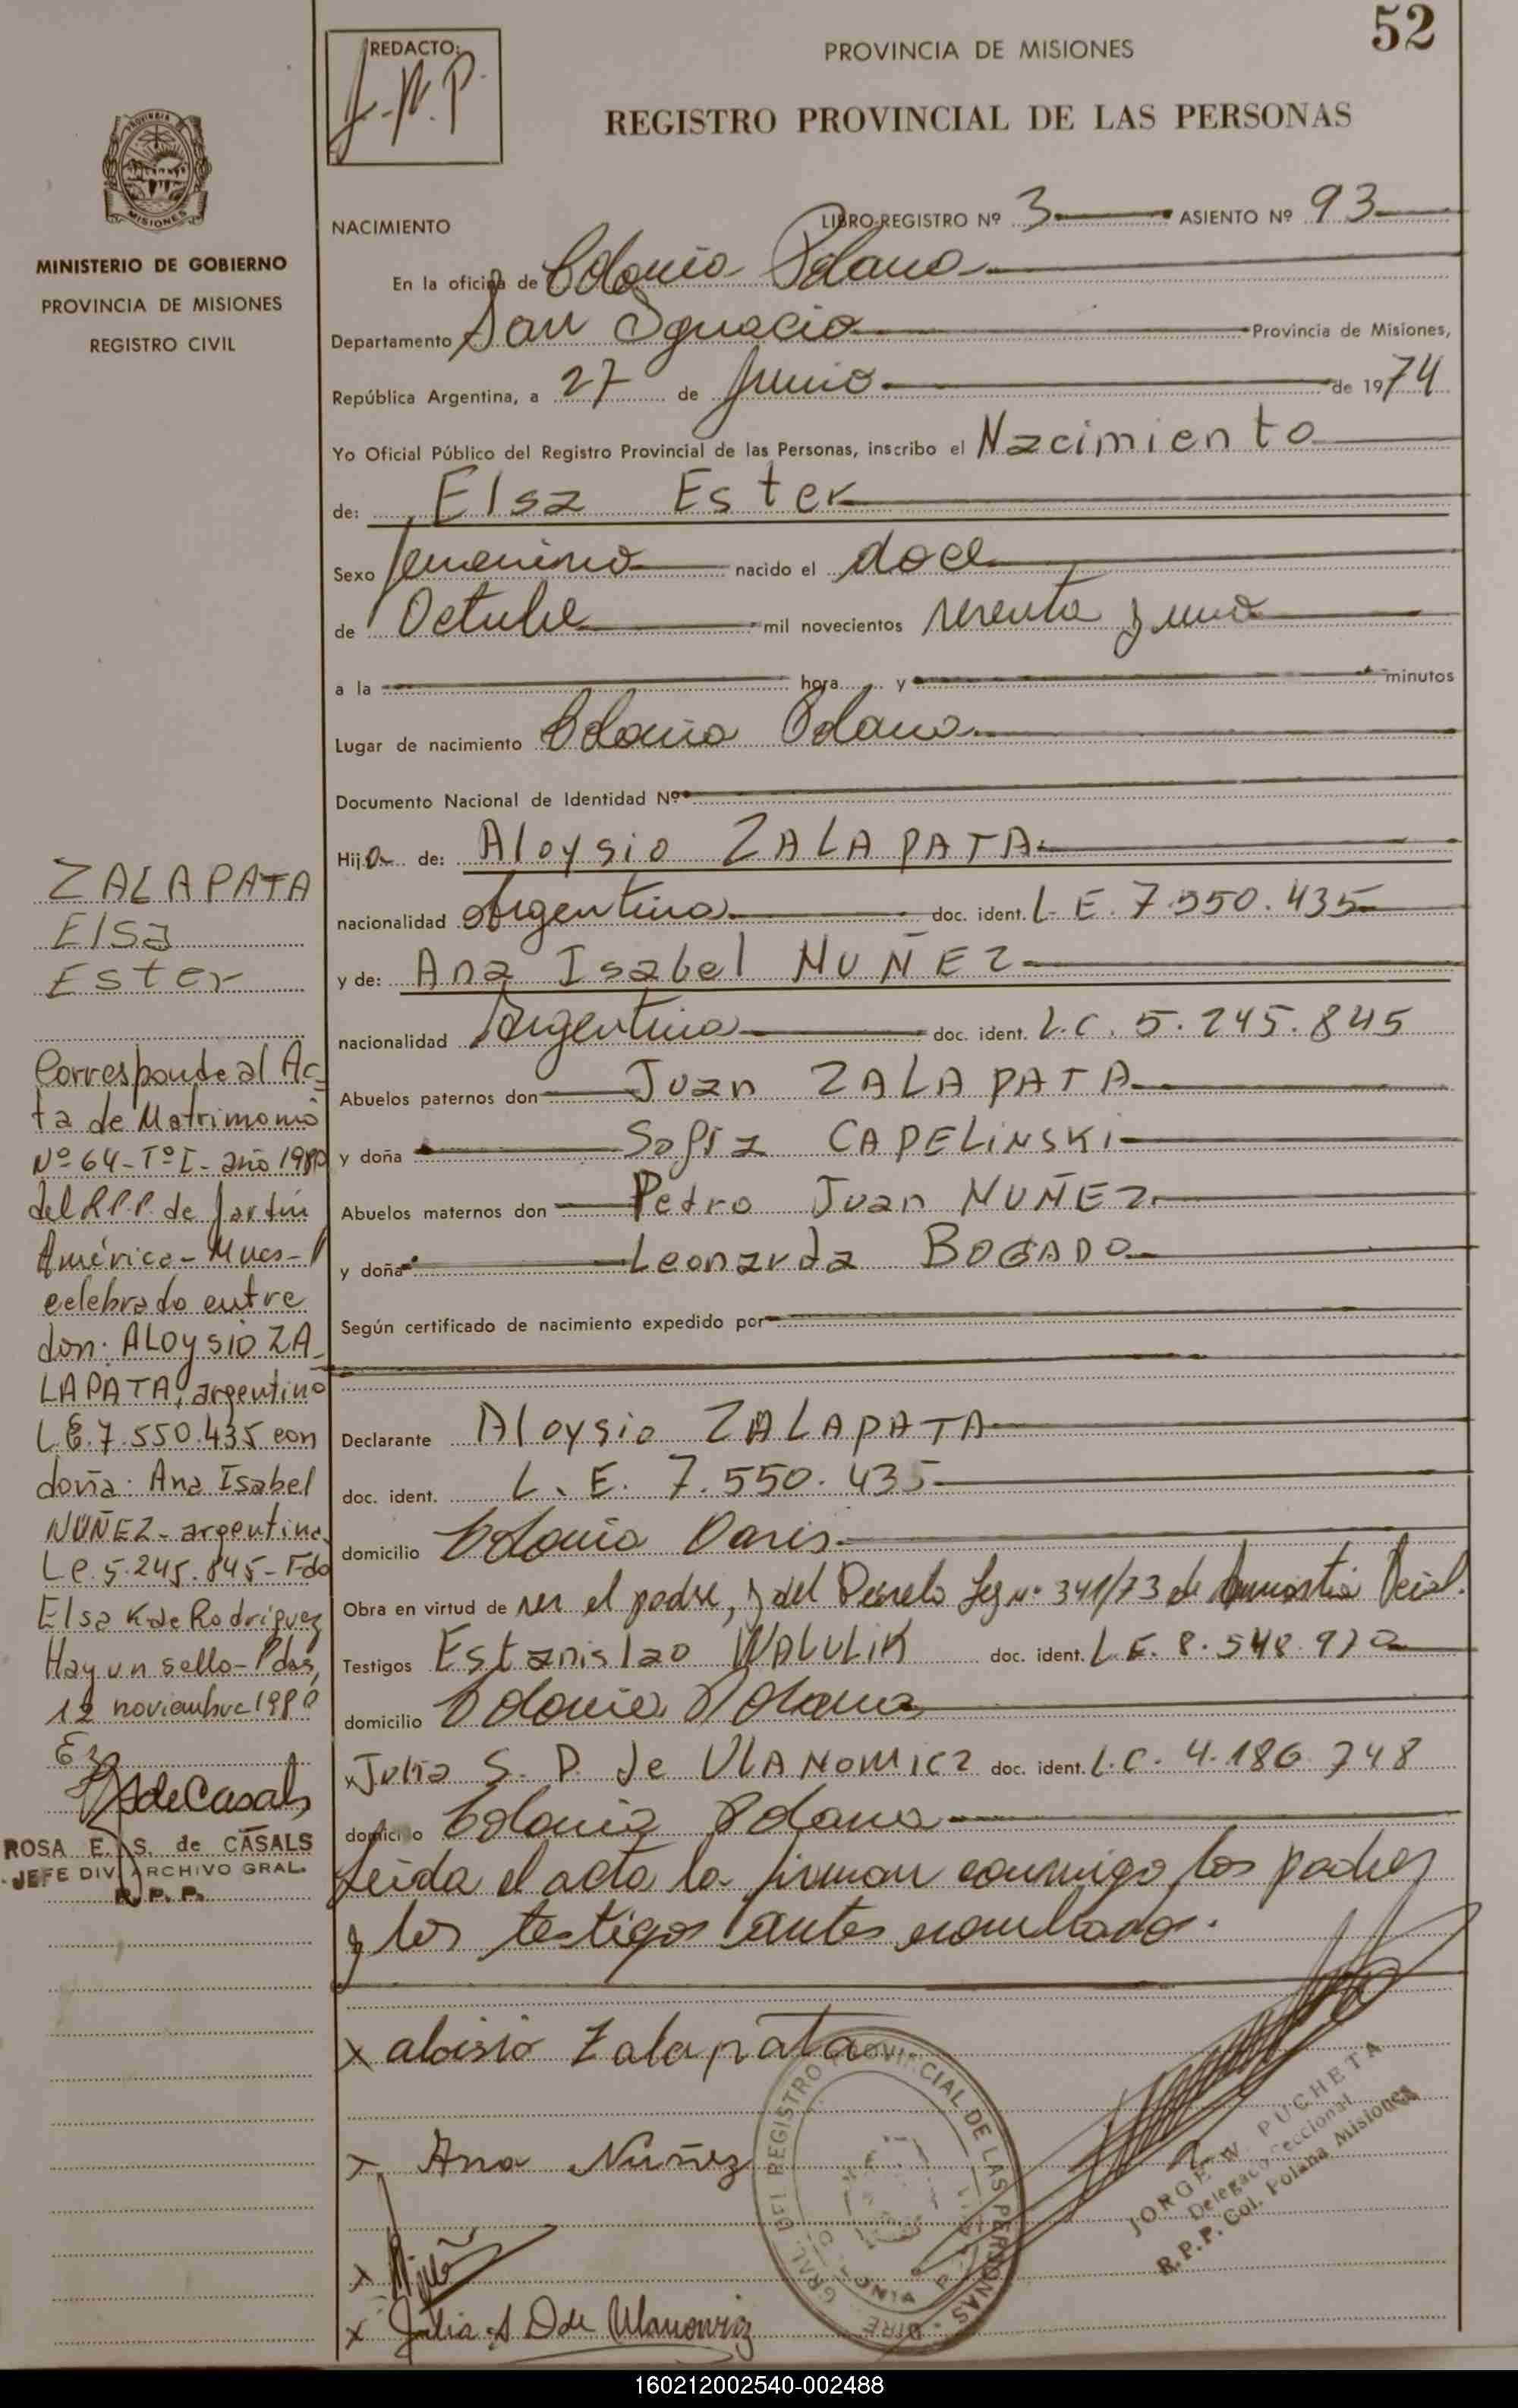 52
REDACTO:
J.W.P.
PROVINCIA DE MISIONES
REGISTRO PROVINCIAL DE LAS PERSONAS
PROVINCIA
MISIONES
MINISTERIO DE GOBIERNO
PROVINCIA DE MISIONES
REGISTRO CIVIL
NACIMIENTO LIBRO-REGISTRO Nº 3 ASIENTO Nº 93
En la oficina de Colonia Polana
Departamento San Ignacio Provincia de Misiones,
República Argentina, a 27 de Junio de 1974
Yo Oficial Público del Registro Provincial de las Personas, inscribo el Nacimiento
de: Elsa Ester
Sexo femenino nacido el doce
de Octubre mil novecientos sesenta y uno
a la hora y minutos
Lugar de nacimiento Colonia Polana
Documento Nacional de Identidad Nº
Hija de: Aloysio ZALAPATA
nacionalidad Argentina doc. ident. L.E. 7.550.435
y de: Ana Isabel NUÑEZ
nacionalidad Argentina doc. ident. L.C. 5.245.845
Abuelos paternos don Juan ZALAPATA
y doña Sofia CAPELINSKI
Abuelos maternos don Pedro Juan NUÑEZ
y doña Leonarda BOGADO
Según certificado de nacimiento expedido por
Declarante Aloysio ZALAPATA
doc. ident. L.E. 7.550.435
domicilio Colonia Oasis
Obra en virtud de ser el padre, y del Decreto Ley Nº 341/73 de Amnistia
Testigos Estanislao WALULIK doc. ident. L.E. 8.548.970
domicilio Colonia Polana
Julia S. D. de ULANOWICZ doc. ident. L.C. 4.186.748
domicilio Colonia Polana
Leida el acta la firman conmigo, los padres
y los testigos antes nombrados.
ZALAPATA
Elsa
Ester
Corresponde al Ac=
ta de Matrimonio
Nº 64-Tº I- año 1980
del R.P.P. de Jardin
América-Mnes-
celebrado entre
don: ALOYSIO ZA_
LAPATA, argentino
L.E. 7.550.435 con
doña: Ana Isabel
NUÑEZ- argentina
L.C. 5.245.845- Fdo
Elsa K de Rodriguez
Hay un sello- Pdas,
12 noviembre 1980
de Casals
ROSA E. S. de CASALS
JEFE DIV. ARCHIVO GRAL.
R. P. P.
x aloisio Zalapata
x Ana Nuñez
x
x Julia S D de Ulanowicz
DIRE GRAL. DEL REGISTRO PROVINCIAL DE LAS PERSONAS
JORGE W. PUCHETA
Delegado Seccional
R.P.P. Col. Polana Misiones
160212002540-002488